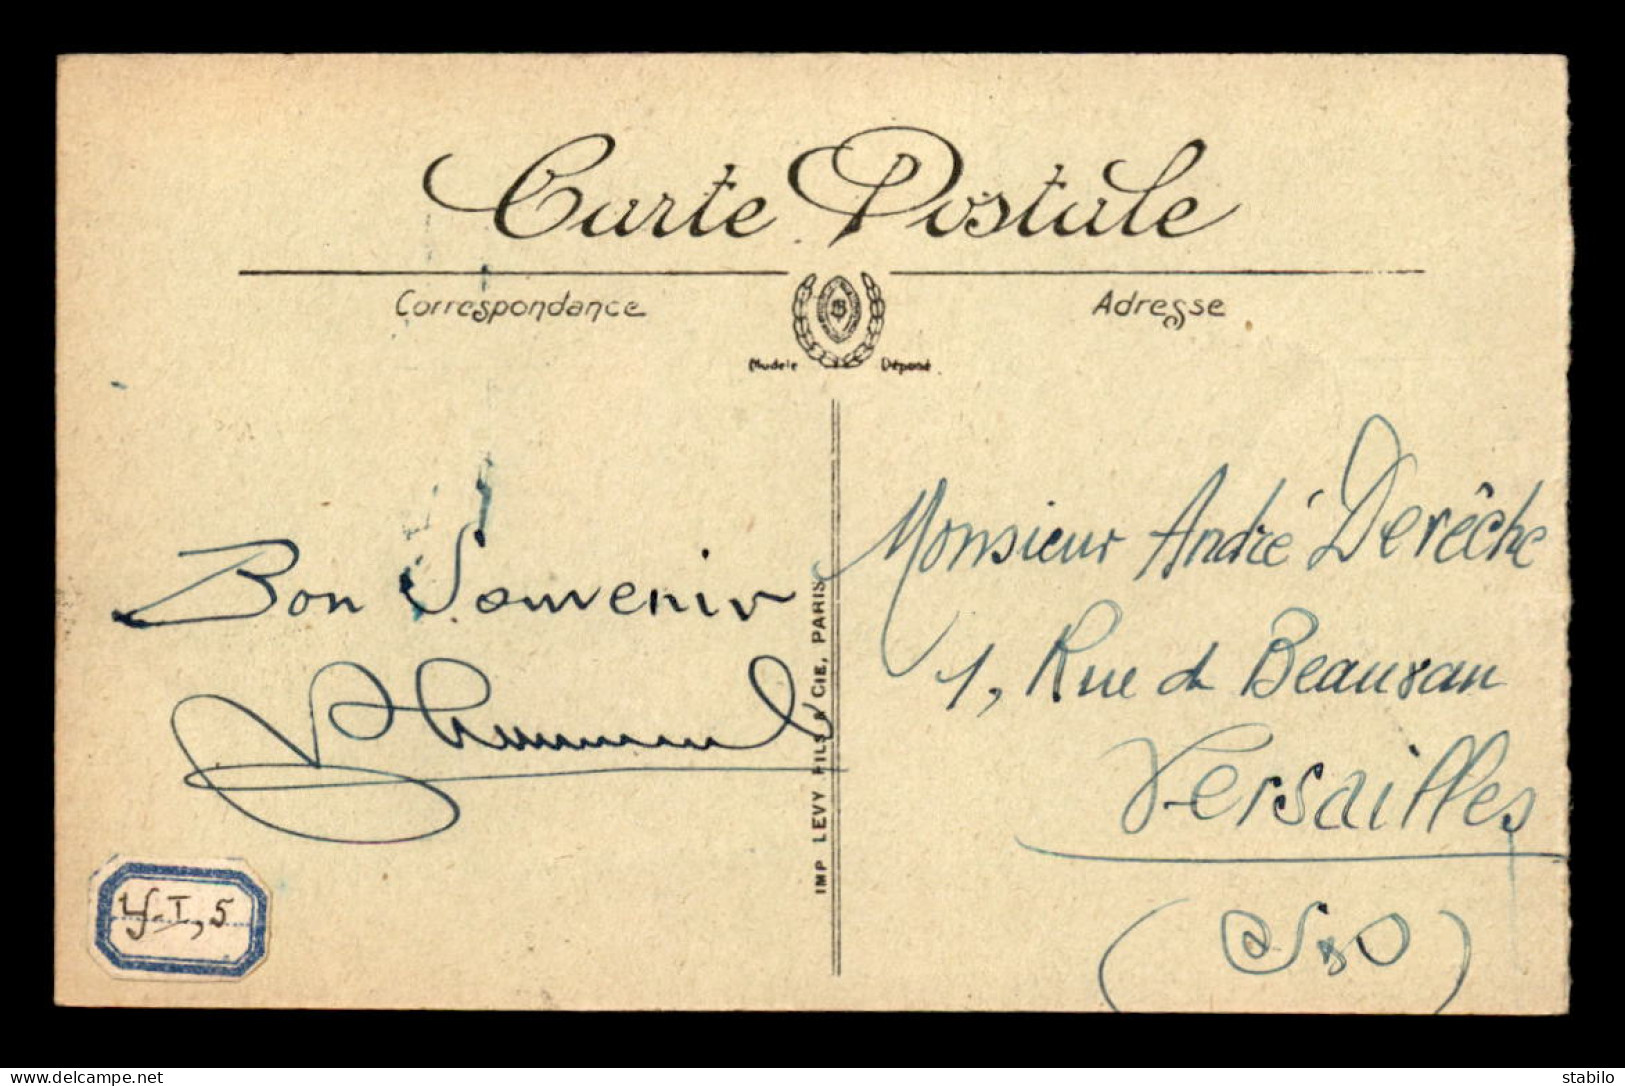 Carte Postale
Correspondance
Adresse
Modèle Déposé
Bon Souvenir
IMP LEVY FILS & CIE, PARIS
Monsieur André Derêche
1, Rue de Beauvau
Versailles
(S & O)
I, 5
stabilo